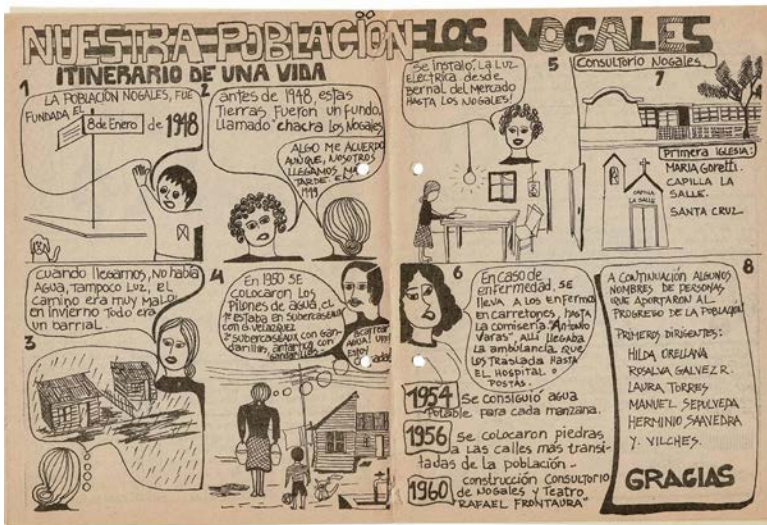 NUESTRA POBLACIÓN LOS NOGALES
ITINERARIO DE UNA VIDA
1
LA POBLACIÓN NOGALES, FUE
FUNDADA EL
8 de Enero de 1948
2
antes de 1948, estas
Tierras Fueron un fundo,
llamado "chacra los Nogales
ALGO ME ACUERDO
AUNQUE, NOSOTROS
LLEGAMOS
TARDE.
1949
3
cuando llegamos, no había
AGUA, TAMPOCO LUZ, EL
camino era muy MALO
en invierno Todo era
un barrial.
4
En 1950 SE
COLOCARON LOS
Pilones de agua, el
1º estaba en SUBERCASEAUX
con G. VELAZQUEZ
2º SUBERCASEAUX, con Gan-
darillas, antartica con
gandarillas
acarrear
AGUA!
ESTOY
5
Se instaló, LA LUZ
ELÉCTRICA desde
Bernal del Mercado
HASTA LOS NOGALES!
6
En caso de
enfermedad, SE
LLEVA A LOS ENFERMO
EN CARRETONES, HASTA
LA COMISERIA "ANTONIO
VARAS", ALLI LLEGABA
LA AMBULANCIA QUE
LOS TRASLADA HASTA
EL HOSPITAL O
POSTAS.
1954 Se consiguió agua
Potable para cada manzana.
1956 Se colocaron piedras
a LAS calles más transi-
tadas de la población -
1960 construcción CONSULTORIO
de NOGALES y TEATRO
"RAFAEL FRONTAURA"
7
CONSULTORIO NOGALES
Primera IGLESIA:
MARIA GORETTI.
CAPILLA LA
SALLE.
SANTA CRUZ
CAPILLA
LA SALLE
8
A CONTINUACIÓN ALGUNOS
NOMBRES DE PERSONAS
QUE APORTARON AL
PROGRESO DE LA POBLACIÓN
PRIMEROS DIRIGENTES:
HILDA ORELLANA
ROSALVA GALVEZ R.
LAURA TORRES
MANUEL SEPULVEDA
HERMINIO SAAVEDRA
Y. VILCHES.
GRACIAS